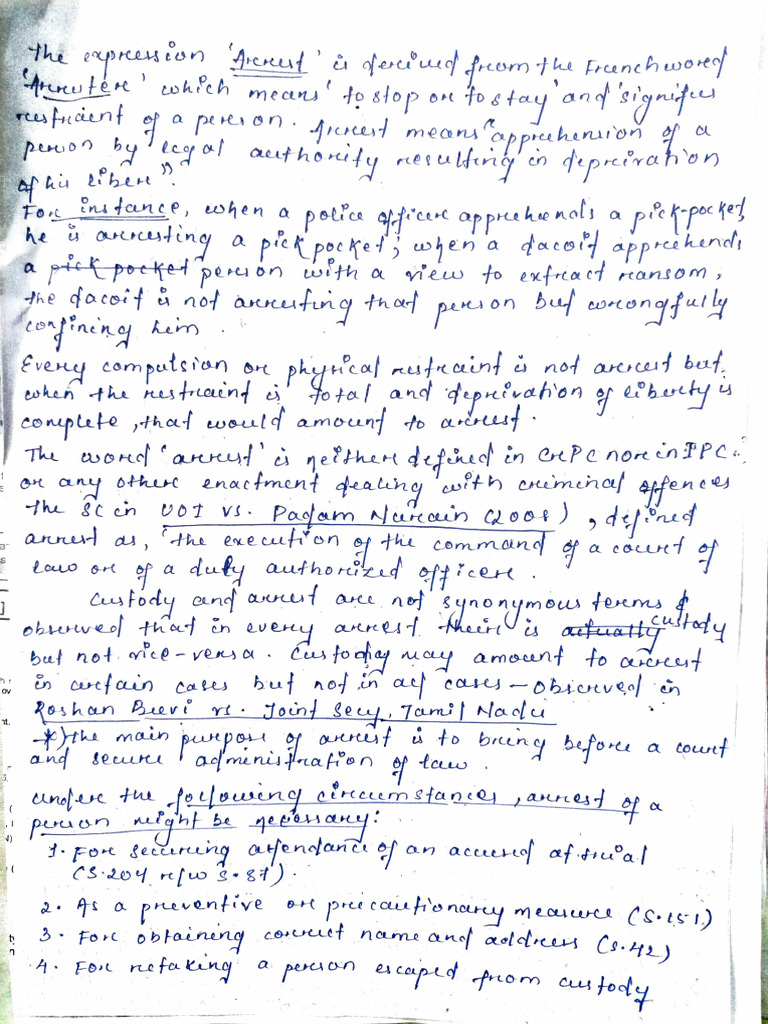 The expression 'Arrest' is derived from the French word
'Arreter' which means 'to stop or to stay' and signifies
restraint of a person. Arrest means "apprehension of a
person by legal authority resulting in deprivation
of his liber".
For instance, when a police officer apprehends a pick-pocket,
he is arresting a pick pocket; when a dacoit apprehends
a pick pocket person with a view to extract ransom,
the dacoit is not arresting that person but wrongfully
confining him.
Every compulsion or physical restraint is not arrest but
when the restraint is total and deprivation of liberty is
complete, that would amount to arrest.
The word 'arrest' is neither defined in CrPC nor in IPC
or any other enactment dealing with criminal offences
The SC in UOI vs. Padam Narain (2008), defined
arrest as, 'the execution of the command of a court of
law or of a duly authorized officer.
Custody and arrest are not synonymous terms &
observed that in every arrest there is actually custody
but not vice-versa. Custody may amount to arrest
in certain cases but not in all cases - observed in
Roshan Beevi vs. Joint Secy, Tamil Nadu
*) the main purpose of arrest is to bring before a court
and secure administration of law.
under the following circumstances, arrest of a
person might be necessary:
1. For securing attendance of an accused at trial
(S.204 r/w S.87).
2. As a preventive or precautionary measure (S.151)
3. For obtaining correct name and address (S.42)
4. For retaking a person escaped from custody